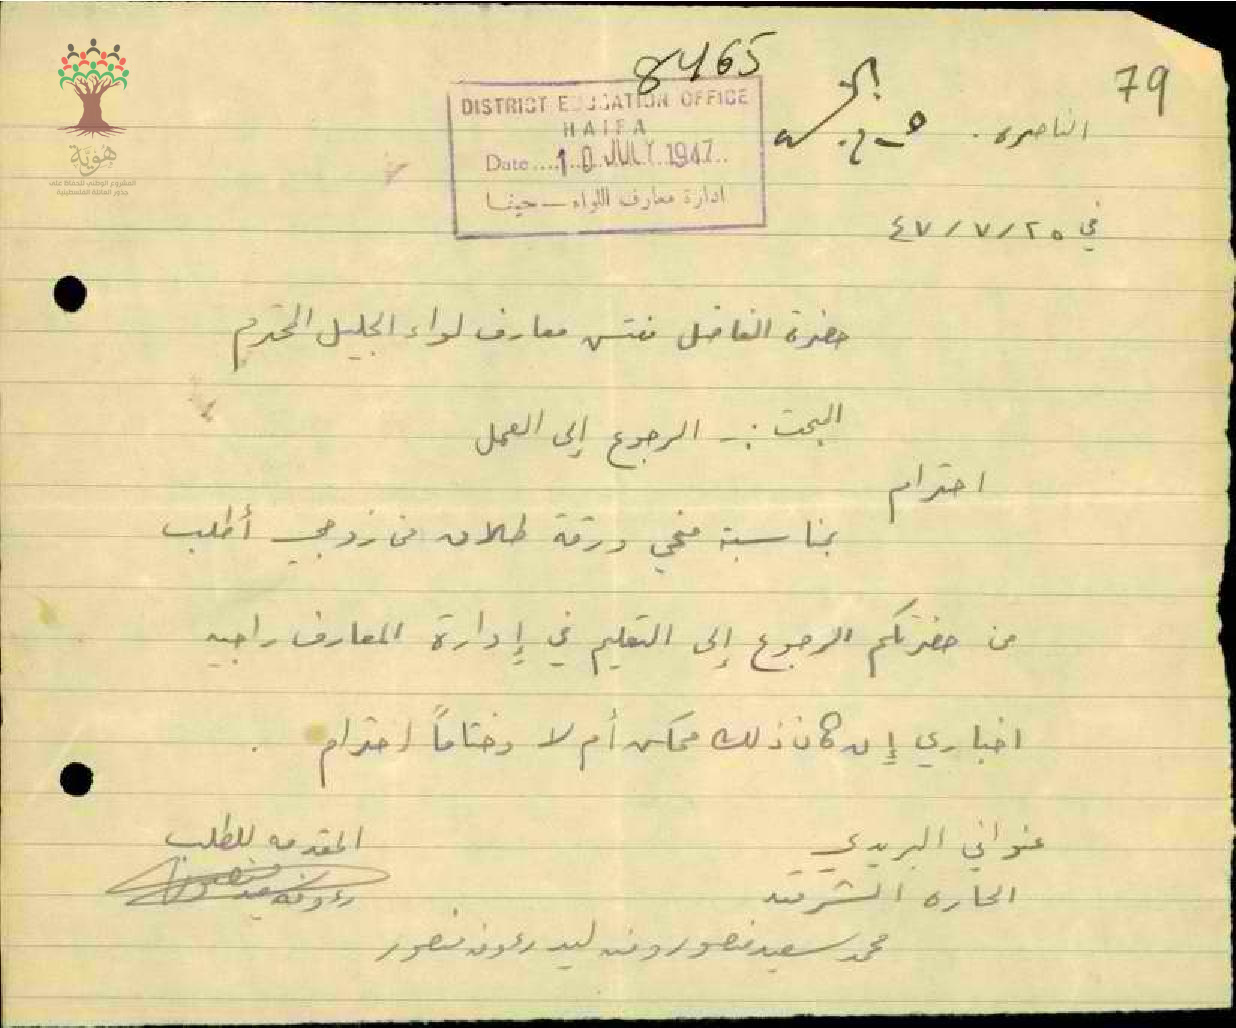 8465
79
DISTRICT EDUCATION OFFICE
HAIFA
Date....10 JULY 1947..
ادارة معارف اللواء — حيفا
الناصره.
في ٢٥/٧/٤٧
حضرة الفاضل مفتش معارف لواء الجليل المحترم
البحث :ـ الرجوع إلى العمل
احترام
بمناسبة منحي ورقة طلاق من زوجي أطلب
من حضرتكم الرجوع إلى التعليم في إدارة المعارف راجيه
اخباري إن كان ذلك ممكن أم لا وختاماً احترام .
عنواني البريدي
الحاره الشرقيه
محمد سعيد منصور ومنه ليد رءوفه منصور
المقدمه للطلب
رءوفه منصور
هَوِيَّة
المشروع الوطني للحفاظ على
جذور العائلة الفلسطينية